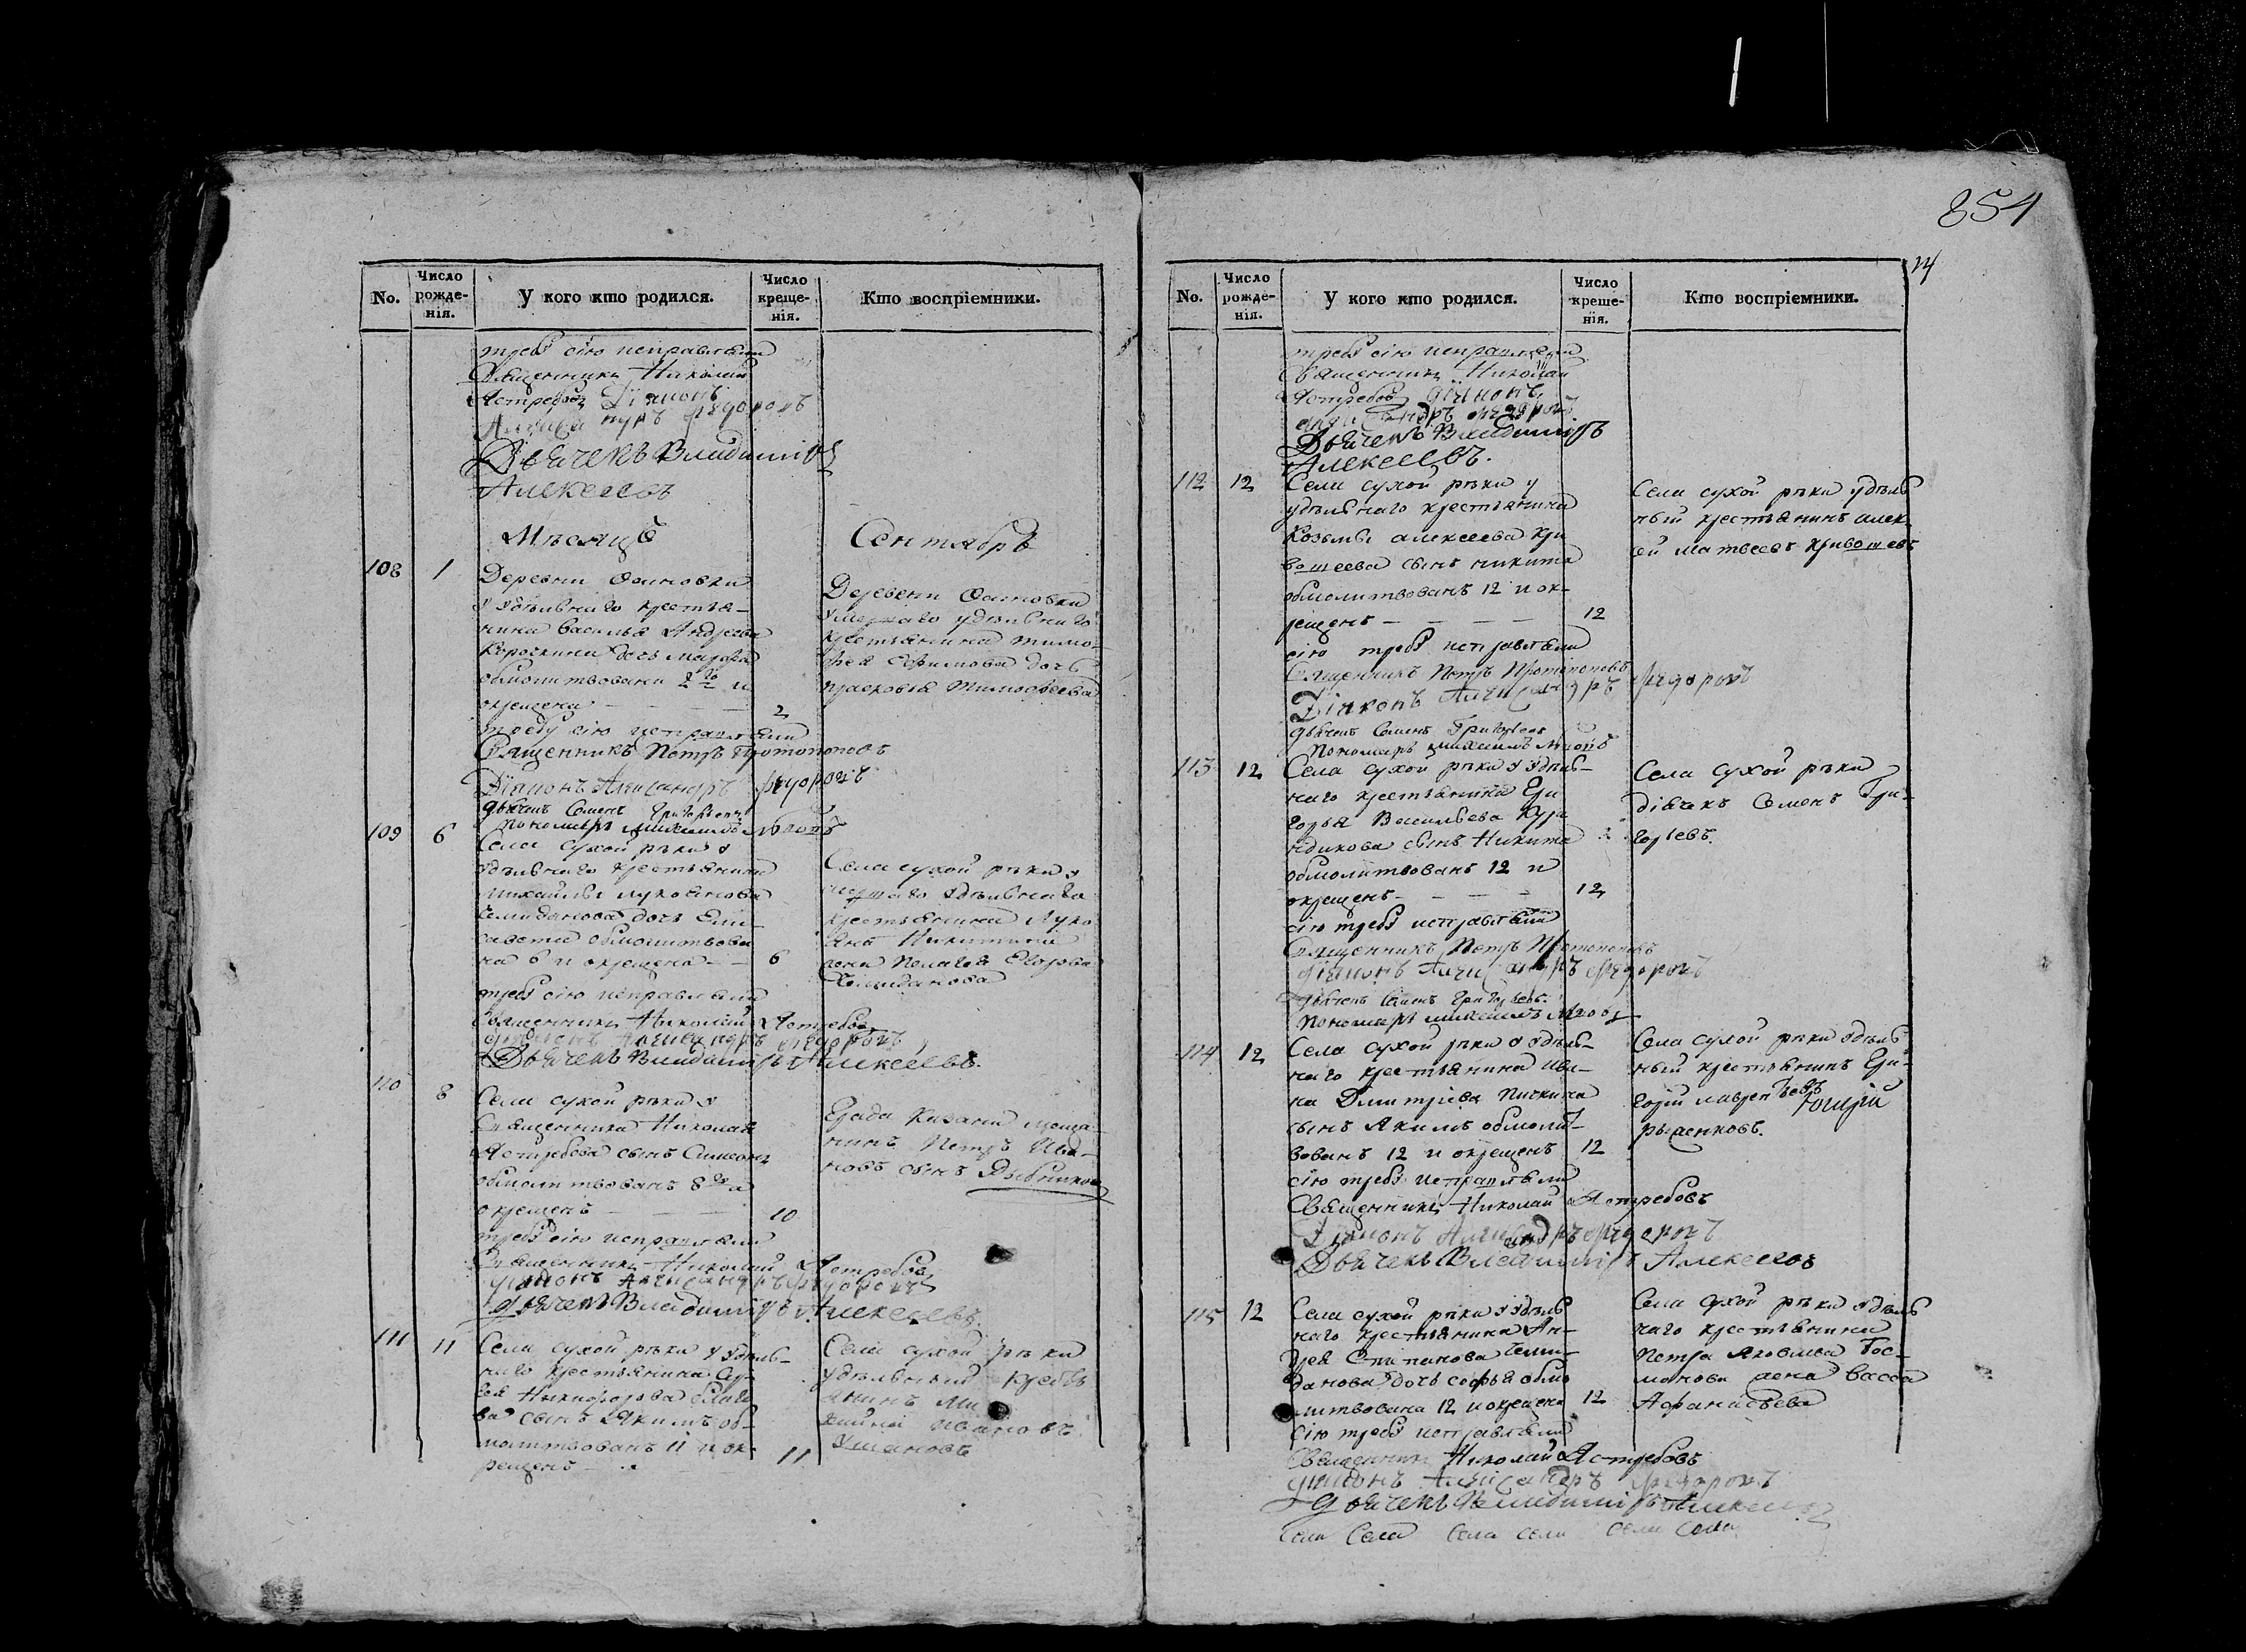 854
14
No.
Число рожде-нія.
У кого кто родился.
Число креще-нія.
Кто воспріемники.
требу сію исправляли
Священникъ Николай
Ястребовъ Діяконъ
Александръ Федоровъ
Дьячекъ Владиміръ
Алексеевъ
Мѣсяцъ Сентябрь
108 1
Деревни
у удѣльнаго крестья-
нина Василья Андреева
дочь Марфа
обмолитвована 2го и
окрещена 2
требу сію исправляли
Священникъ Петръ Протопоповъ
Діяконъ Александръ Федоровъ
дьячекъ Семенъ Григорьевъ
Пономарь Михаилъ
Деревни
умершаго удѣльнаго
крестьянина Тимо-
фея Ефимова дочь
Прасковья Тимофеева
109 6
Села Сухой рѣки у
удѣльнаго крестьянина
Михайлы Лукоянова
Чемиданова дочь Ели-
савета обмолитвова
на 6 и окрещена 6
требу сію исправляли
Священникъ Николай Ястребовъ
діяконъ Александръ Федоровъ
Дьячекъ Владиміръ Алексеевъ.
Села Сухой рѣки у
удѣльнаго
крестьянина Луко
янъ Никитина
жена Пелагея Егорова
Чемиданова
110 8
Села Сухой рѣки у
Священника Николая
Ястребова сынъ Симеонъ
обмолитвованъ 8го и
окрещенъ 10
требу сію исправляли
Священникъ Николай Ястребовъ
діяконъ Александръ Федоровъ
дьячекъ Владиміръ Алексеевъ.
Града Казани меща
нинъ Петръ Ива-
новъ сынъ
111 11
Села Сухой рѣки у удѣль-
наго крестьянина Сер-
гея Никифорова
сынъ Якимъ об-
молитвованъ 11 и ок-
рещенъ 11
Села Сухой рѣки
удѣльный кресть
янинъ Ми
хайла Ивановъ
Ушановъ
No.
Число рожде-нія.
У кого кто родился.
Число креще-нія.
Кто воспріемники.
требу сію исправляли
Священникъ Николай
Ястребовъ діяконъ
Александръ Федоровъ
Дьячекъ Владиміръ
Алексеевъ.
112 12
Села Сухой рѣки у
удѣльнаго крестьянина
Козьмы Алексеева Кри
вошеева сынъ Никита
обмолитвованъ 12 и ок-
рещенъ 12
сію требу исправляли
Священникъ Петръ Протопоповъ
Діяконъ Александръ Федоровъ
дьячекъ Семенъ Григорьевъ
Пономарь Михаилъ
Села Сухой рѣки удѣль
ный крестьянинъ Алек
сей Матвеевъ Кривошеевъ
113 12
Села Сухой рѣки у удѣль-
наго крестьянина Гри
горья Васильева
сынъ Никита
обмолитвованъ 12 и
окрещенъ 12
сію требу исправляли
Священникъ Петръ Протопоповъ
діяконъ Александръ Федоровъ
дьячекъ Семенъ Григорьевъ.
Пономарь Михаилъ
Села Сухой рѣки
діячекъ Семенъ Гри-
горьевъ.
114 12
Села Сухой рѣки у удѣль-
наго крестьянина Ива-
на Дмитріева Пичкина
сынъ Якимъ обмолит-
вованъ 12 и окрещенъ 12
сію требу исправляли
Священникъ Николай Ястребовъ
Діяконъ Александръ Федоровъ
Дьячекъ Владиміръ Алексеевъ
Села Сухой рѣки удѣль-
ный крестьянинъ Гри-
горій Лаврентьевъ
115 12
Села Сухой рѣки у удѣль
наго крестьянина Ан-
дрея Степанова Чеми-
данова дочь Софья обмо
литвована 12 и окрещена 12
сію требу исправляли
Священникъ Николай Ястребовъ
діяконъ Александръ Федоровъ
дьячекъ Владиміръ Алексеевъ
Села Села Села Села Села
Села Сухой рѣки удѣль
наго крестьянина
Петра Яковлева
жена Васса
Афанасьева